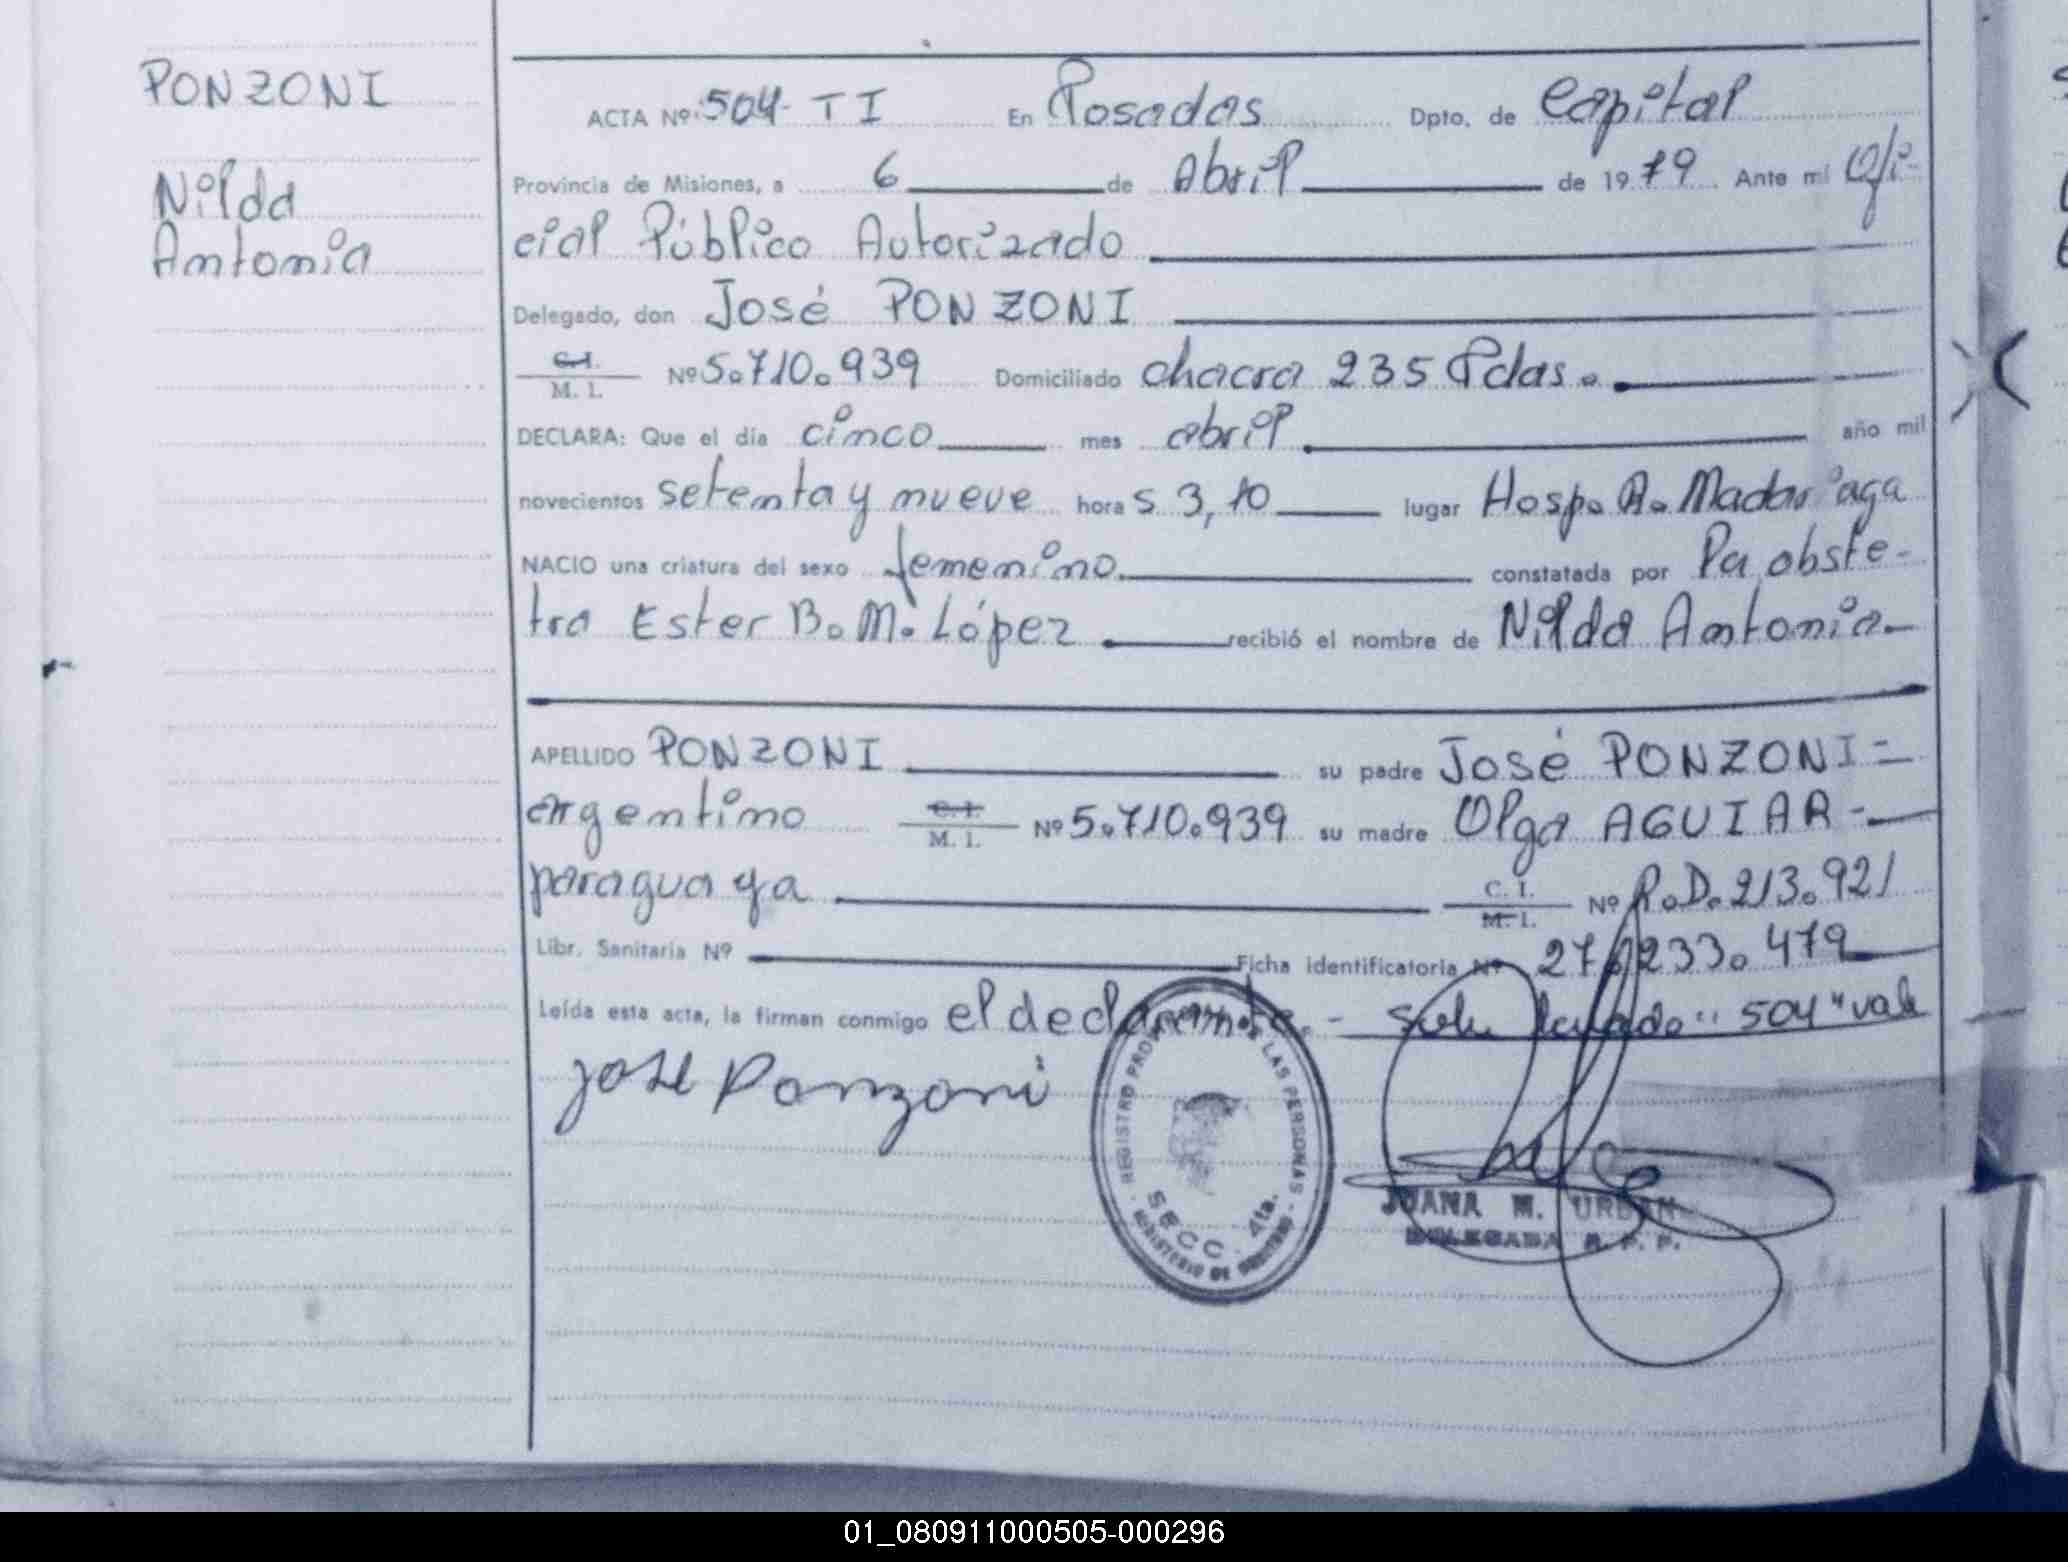 PONZONI
Nilda
Antonia
ACTA Nº 504- T I En Posadas Dpto. de Capital
Provincia de Misiones, a 6 de Abril de 1979 Ante mi Ofi-
cial Público Autorizado
Delegado, don José PONZONI
C.I. M. I. Nº 5.710.939 Domiciliado chacra 235 Pdas.
DECLARA: Que el día cinco mes abril año mil
novecientos setenta y nueve hora s 3,10 lugar Hosp. R. Madariaga
NACIO una criatura del sexo femenino constatada por la obste-
tra Ester B. M. López recibió el nombre de Nilda Antonia
APELLIDO PONZONI su padre José PONZONI=
argentino C.I. M. I. Nº 5.710.939 su madre Olga AGUIAR-
paraguaya C. I. M. I. Nº R.D.213.921
Libr. Sanitaria Nº Ficha identificatoria Nº 27.233.479
Leída esta acta, la firman conmigo el declarante - "504" vale
José Ponzoni
REGISTRO DE LAS PERSONAS
SECC. 4ta.
MINISTERIO DE GOBIERNO
JUANA M. URBAN
DELEGADA R. P. P.
01_080911000505-000296